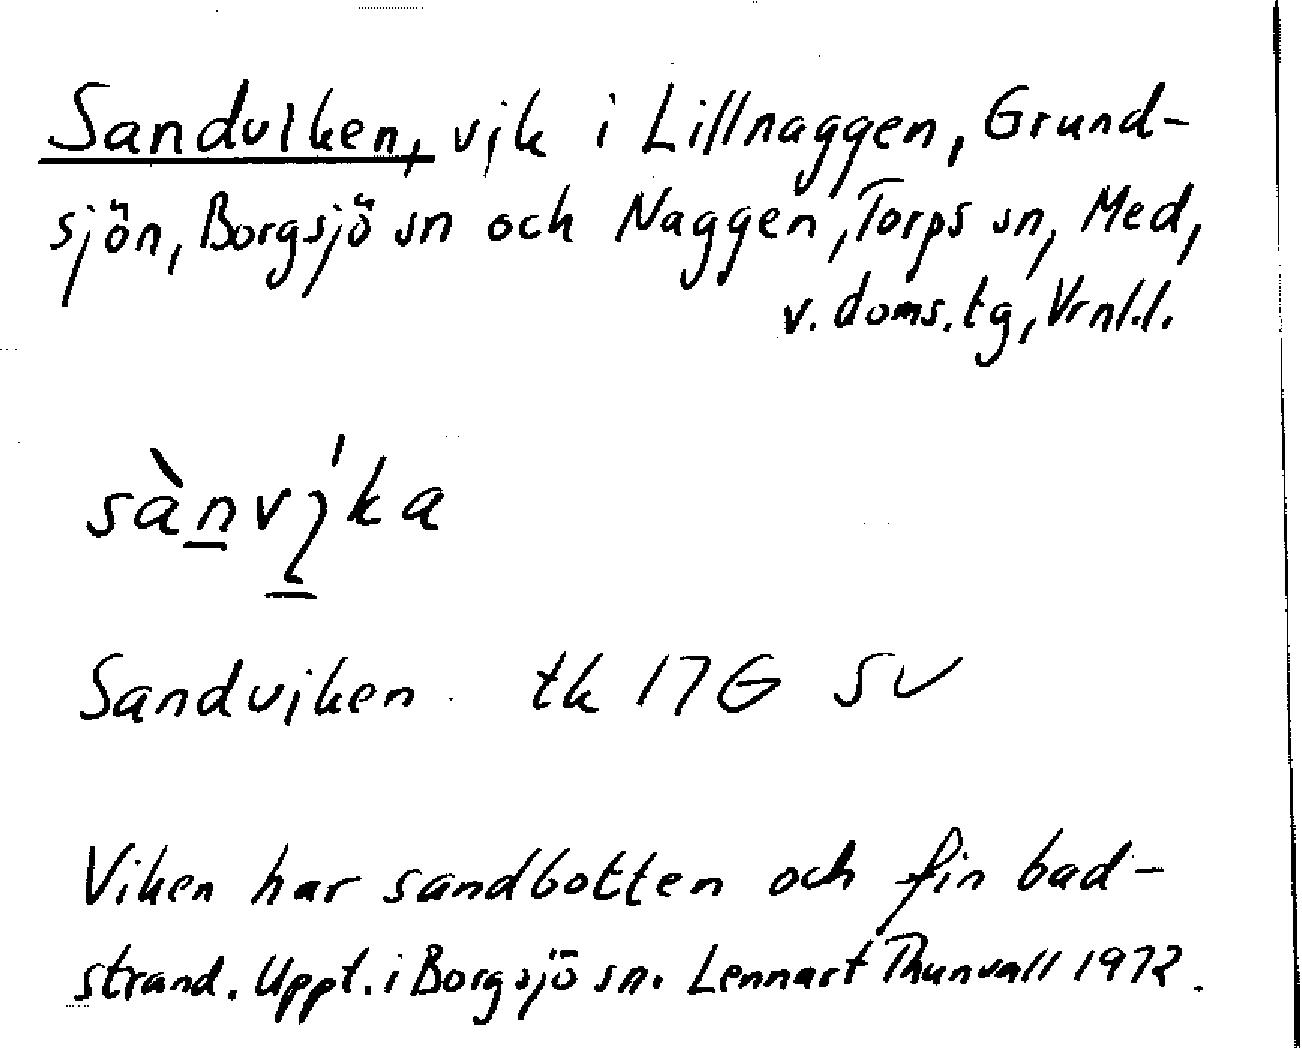 Sandviken, vik i Lillnaggen, Grund-
sjön, Borgsjö sn och Naggen, Torps sn, Med,
v. doms. tg, Vrnl.l.
sànvi̱ka
Sandviken tk 17G SV
Viken har sandbotten och fin bad-
strand. Uppt. i Borgsjö sn. Lennart Thunvall 1972.